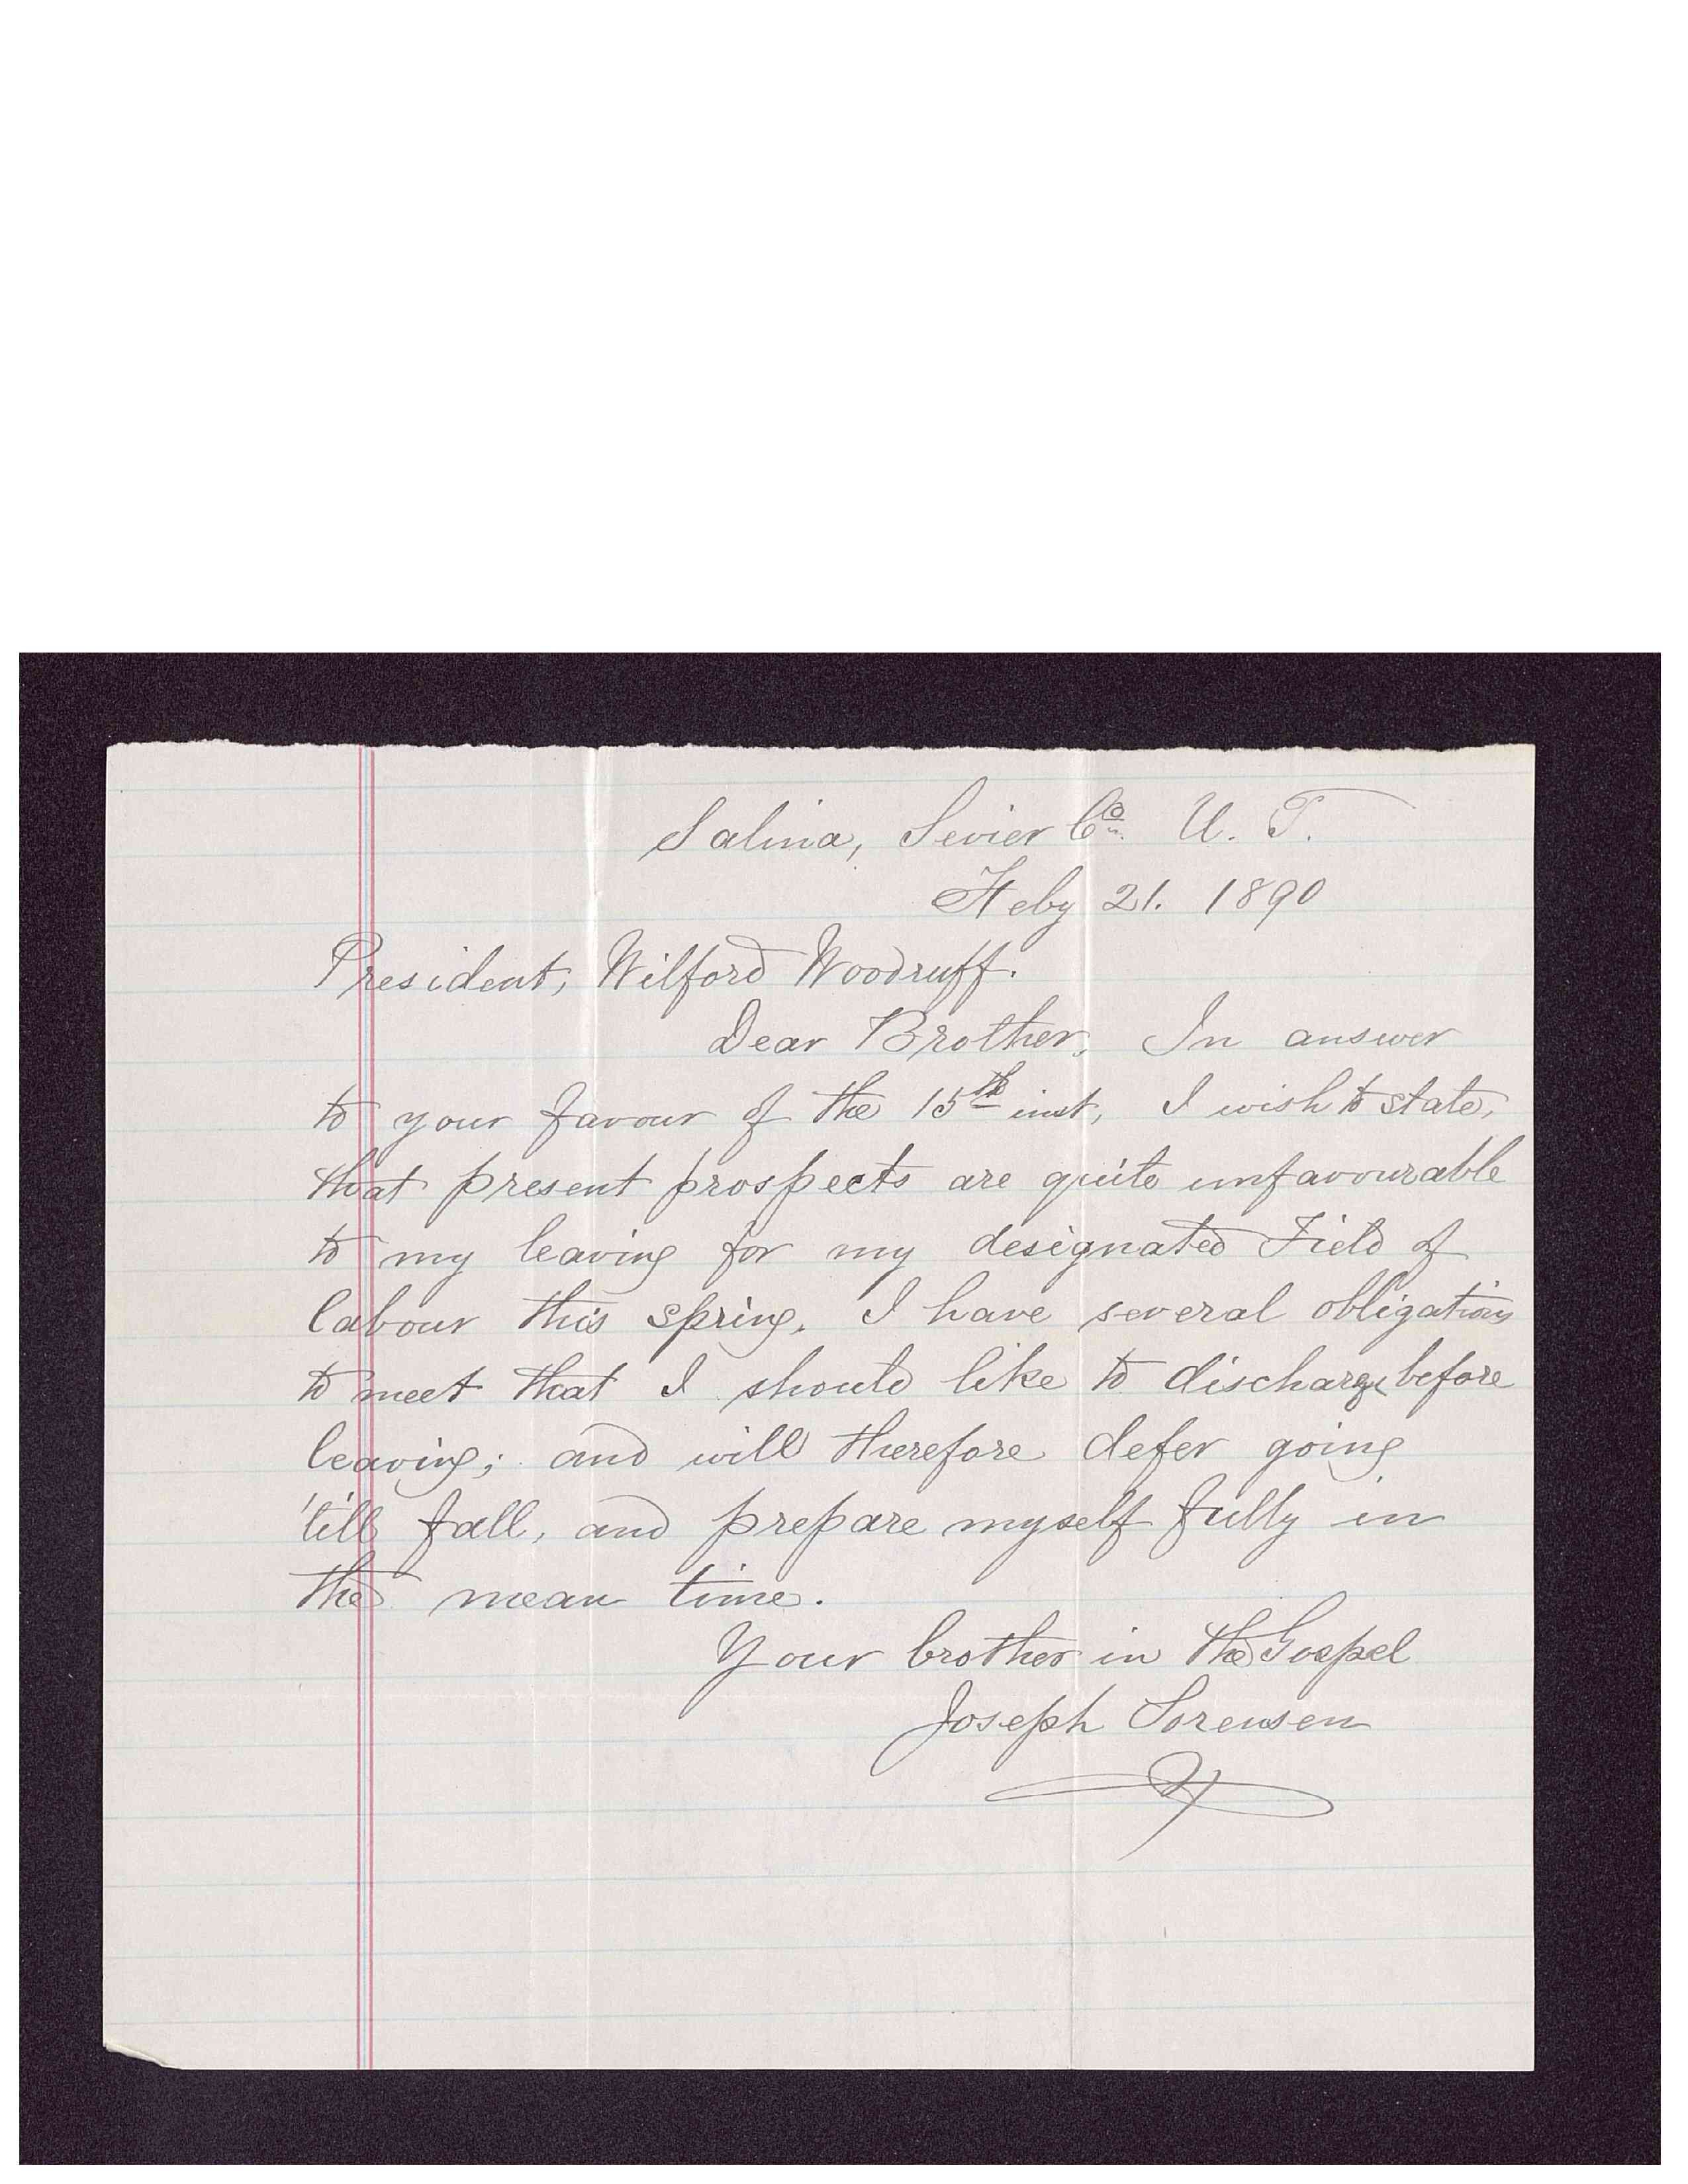 Salina, Sevier Co. U. T.
Feby 21. 1890
President, Wilford Woodruff.
Dear Brother, In answer
to your favour of the 15th inst, I wish to state,
that present prospects are quite unfavourable
to my leaving for my designated Field of
labour this spring. I have several obligations
to meet that I should like to discharge before
leaving; and will therefore defer going
'till fall, and prepare myself fully in
the mean time.
Your brother in the Gospel
Joseph Sorensen